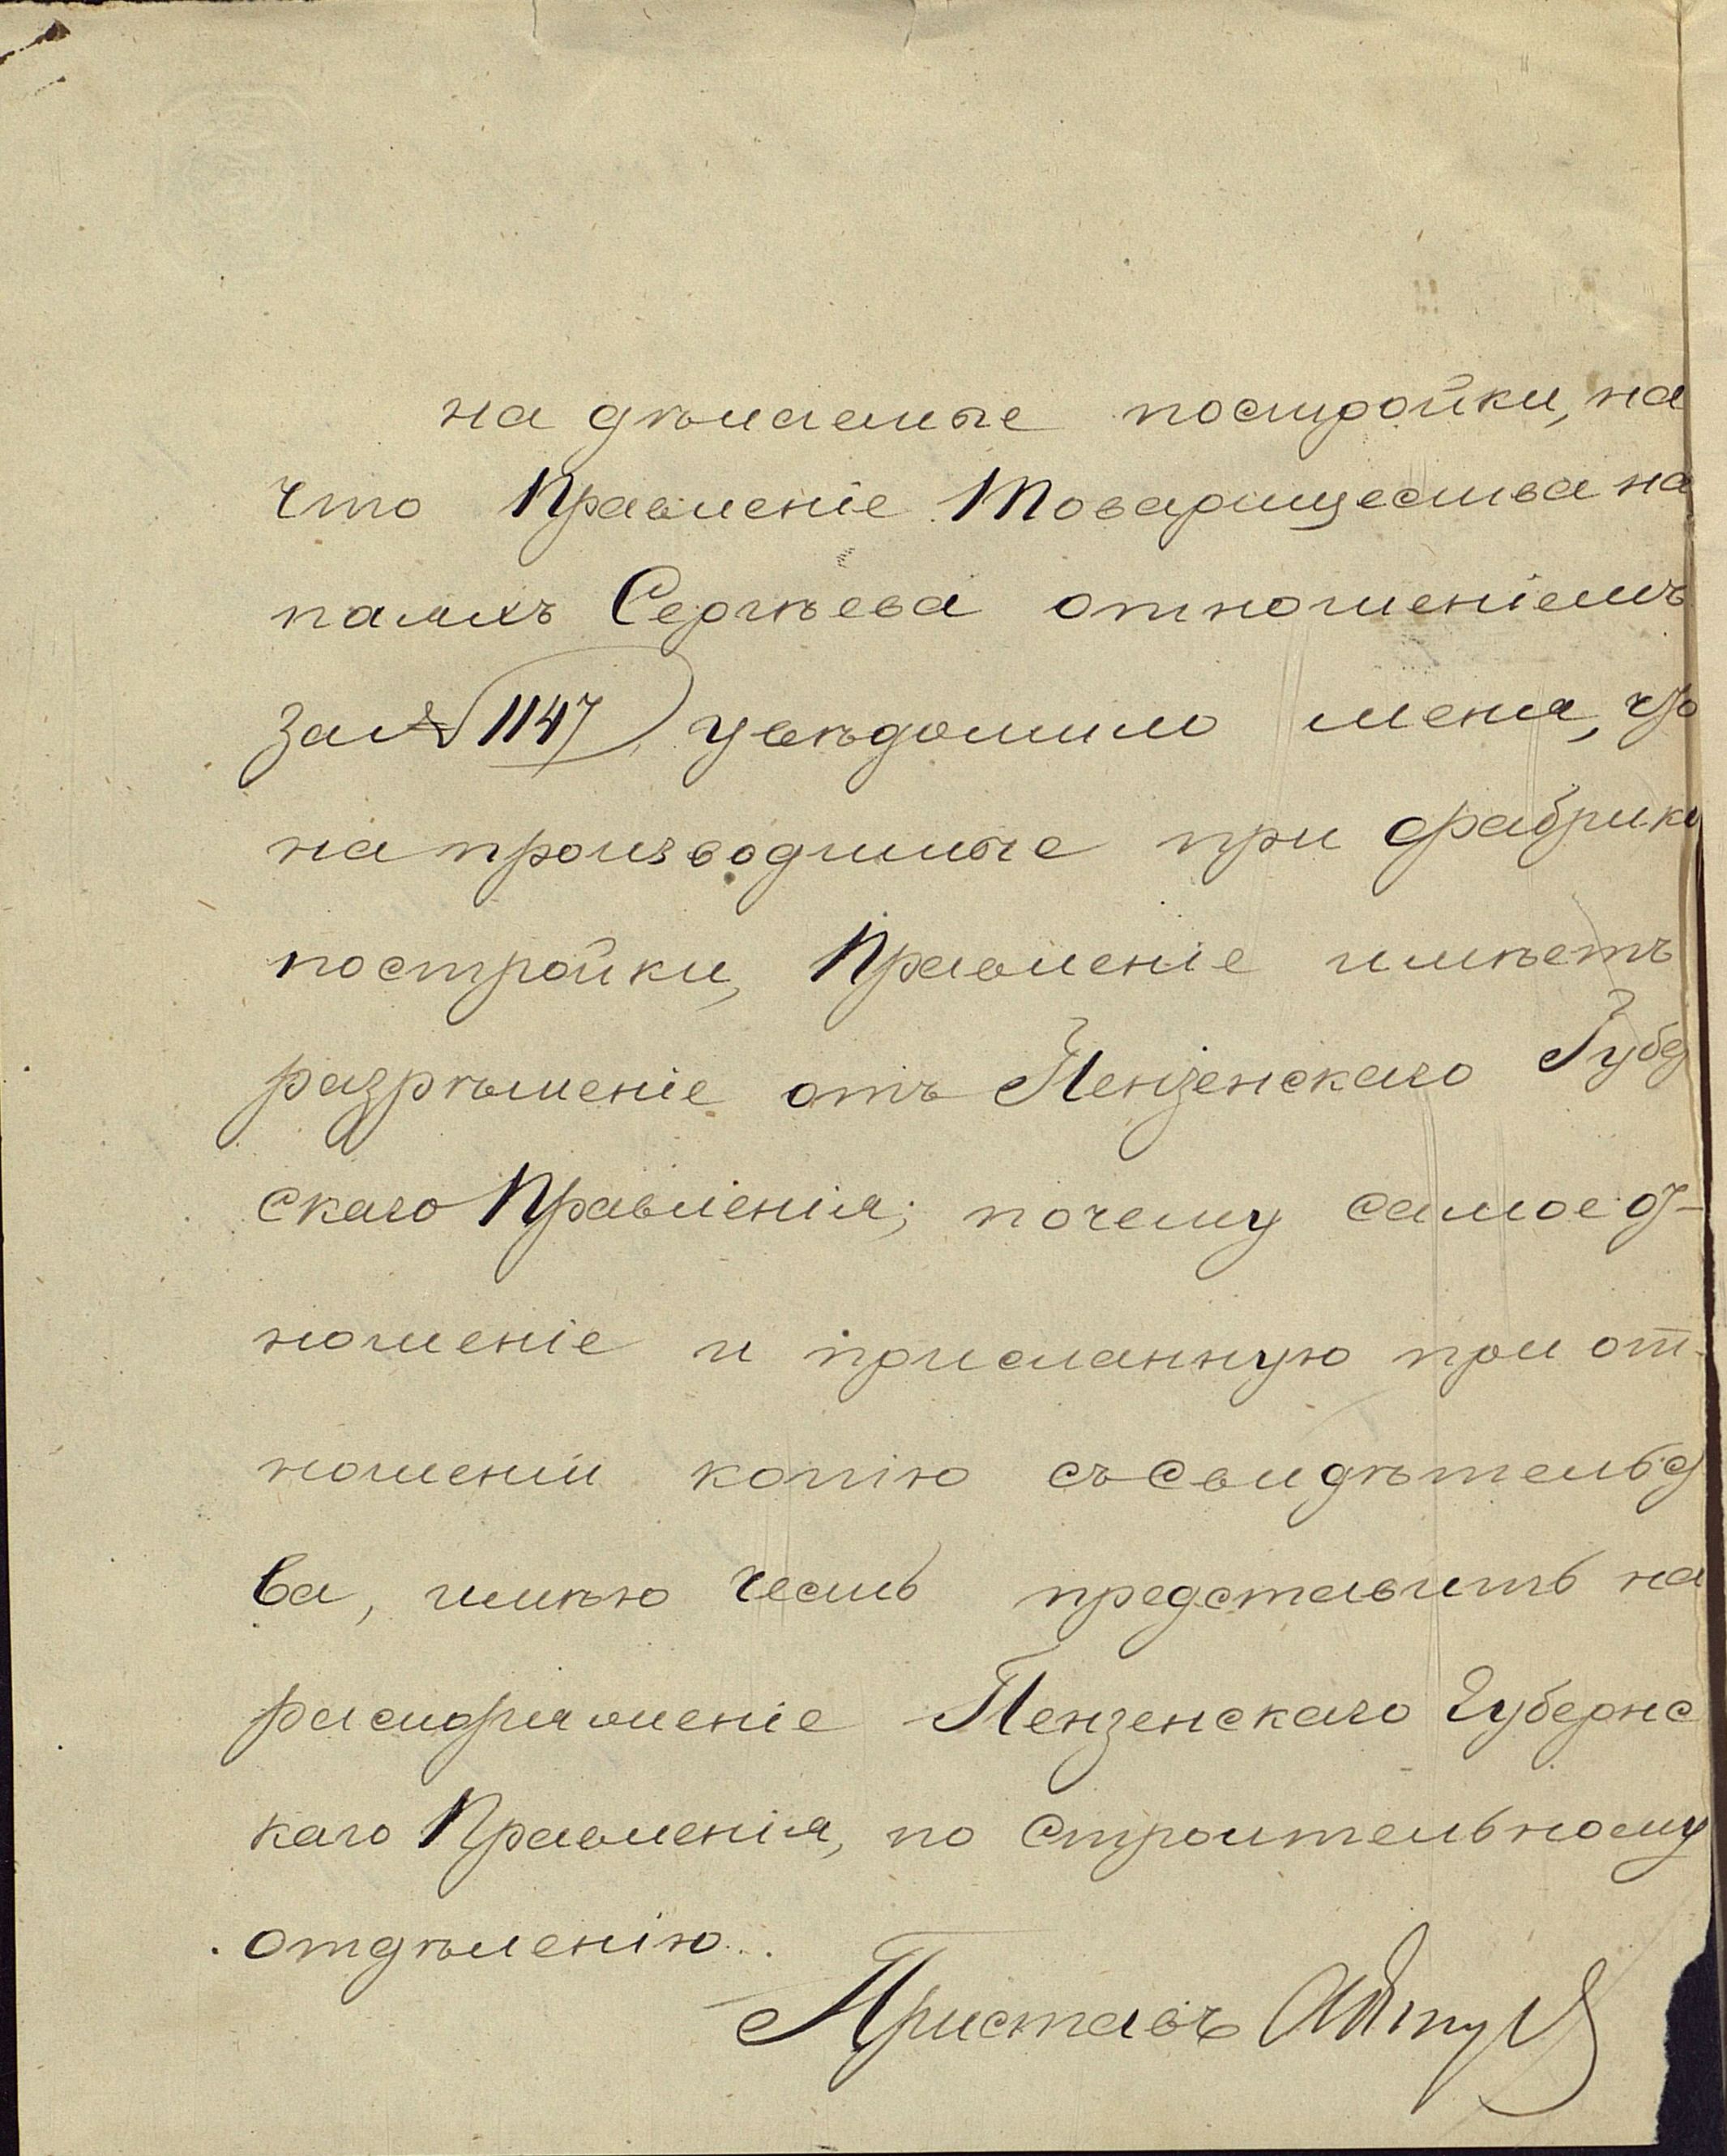 на дѣлаемые постройки, на
что Правленіе Товарищества на
паяхъ Сергѣева отношеніемъ
за № 1147, увѣдомило меня, что
на производимые при фабрики
постройки, Правленіе имѣетъ
разрѣшеніе отъ Пензенскаго Губер
скаго Правленія; почему самое от-
ношеніе и присланную при от-
ношеніи копію съ свидѣтельст
ва, имѣю честь представить на
распоряженіе Пензенскаго Губернс
каго Правленія, по строительному
отдѣленію.
Приставъ